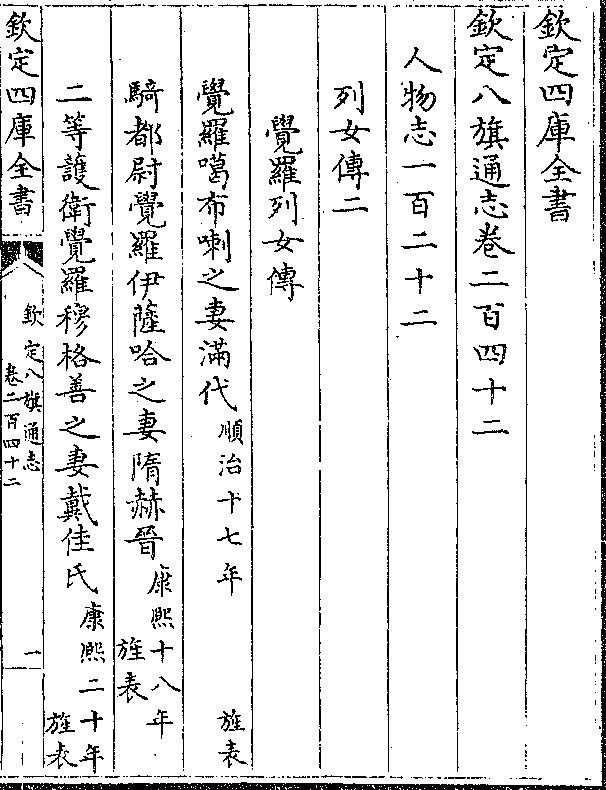 欽定四庫全書
欽定八旗通志卷二百四十二
人物志一百二十二
列女傳二
覺羅列女傳
覺羅噶布喇之妻滿代順治十七年旌表
騎都尉覺羅伊薩哈之妻隋赫晉康熙十八年旌表
二等護衛覺羅穆格善之妻戴佳氏康熙二十年旌表
欽定四庫全書
欽定八旗通志
卷二百四十二
一